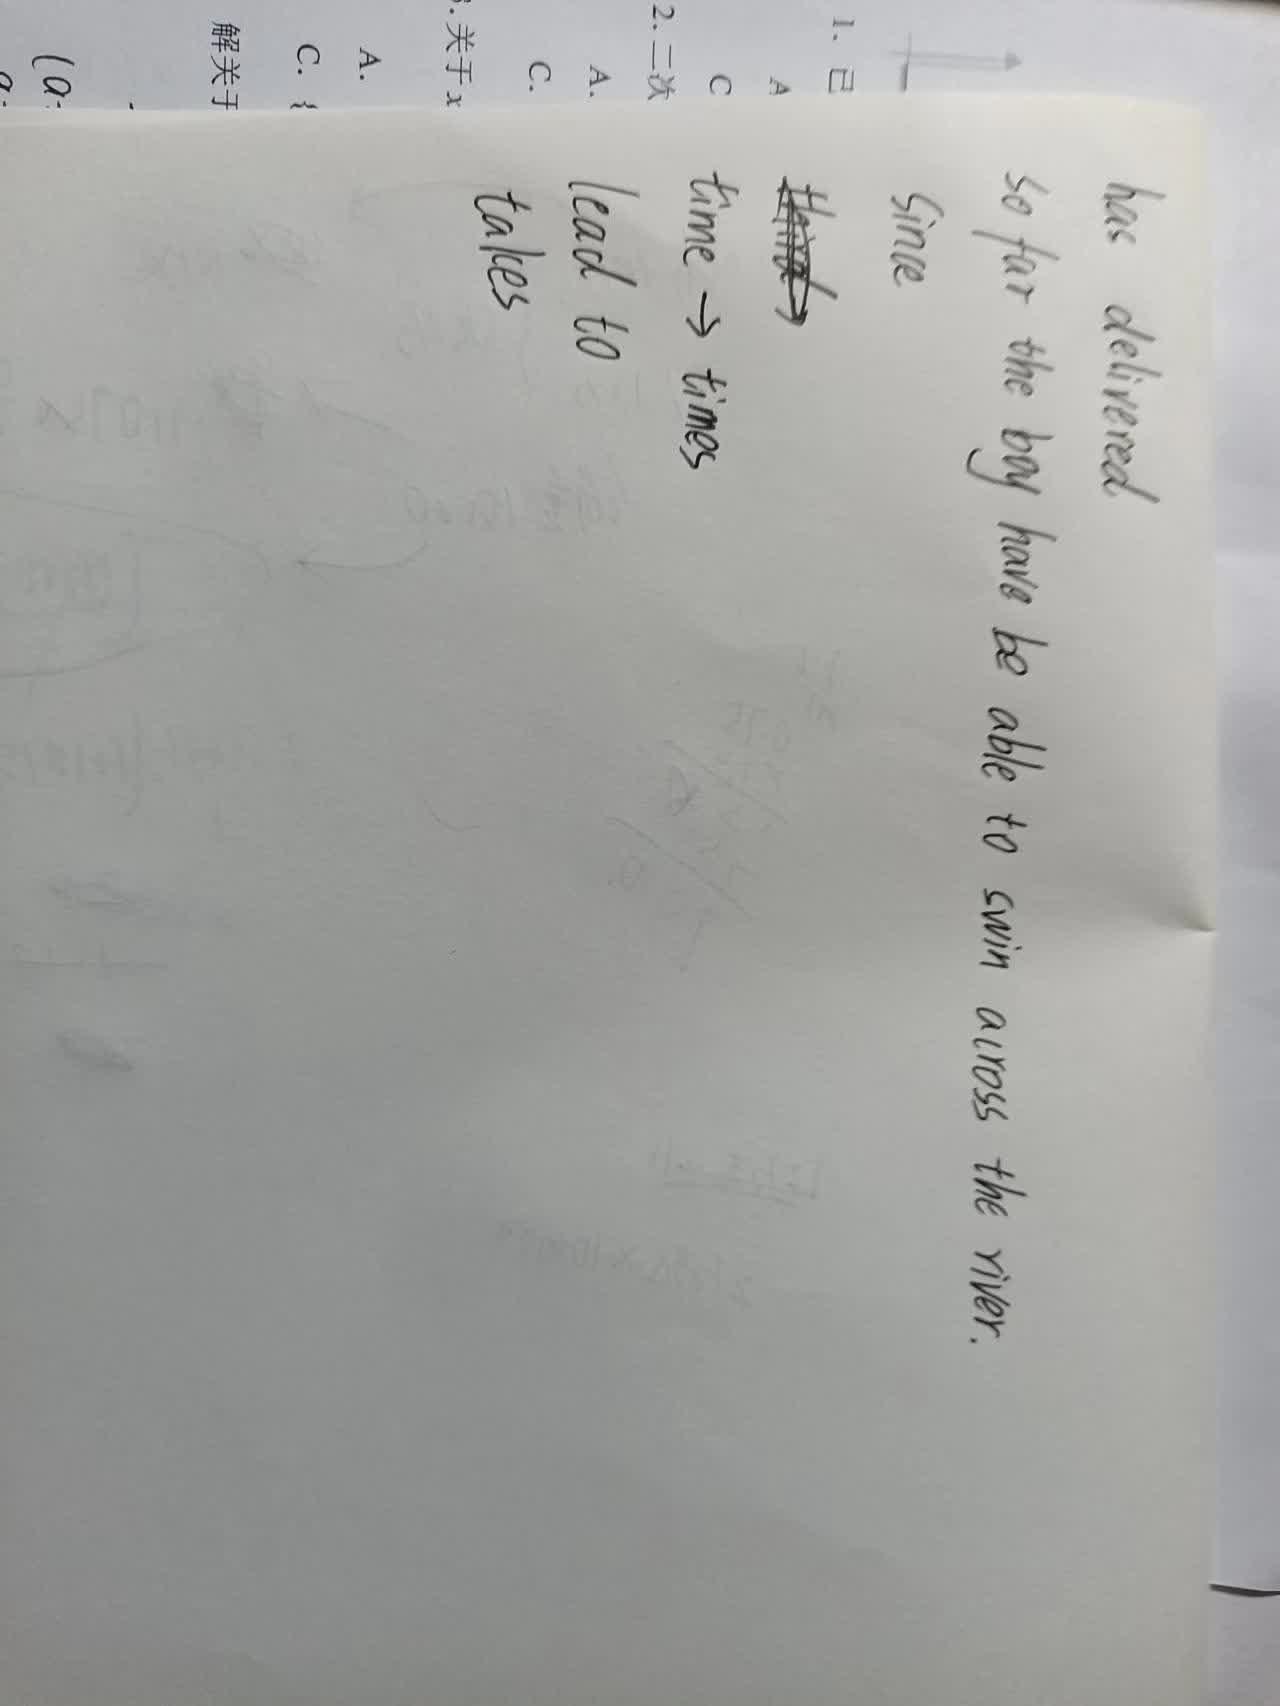 1. 已
A
C
2. 二次
A.
C.
. 关于 x
A.
C. {
解关于
(a:
a:
has delivered
so far the boy have be able to swin across the river.
Since
time → times
lead to
takes